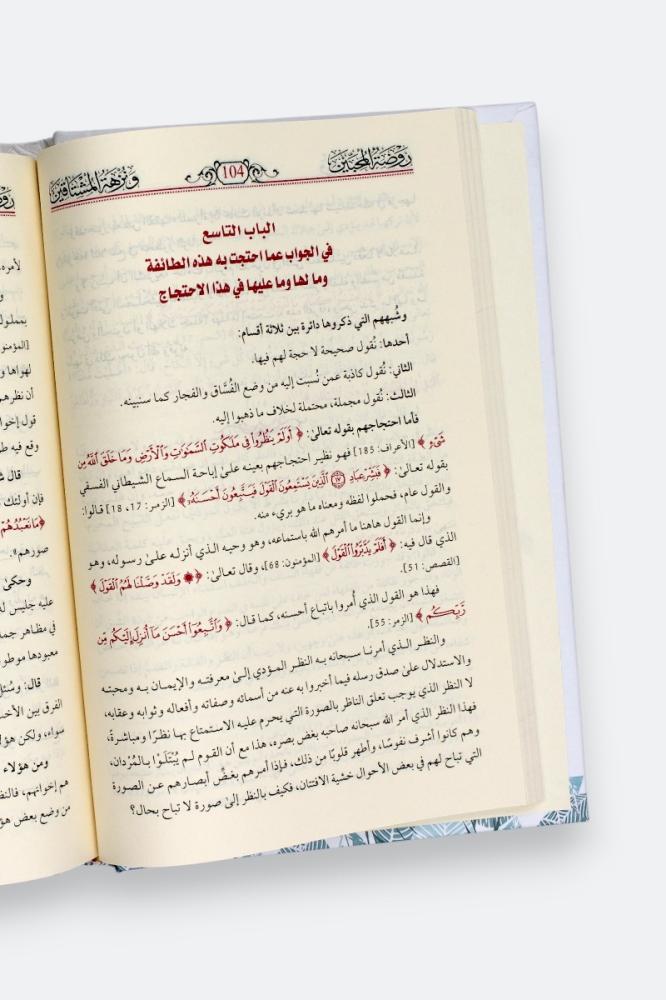 روضة المحبين
104
ونزهة المشتاقين
الباب التاسع
في الجواب عما احتجت به هذه الطائفة
وما لها وما عليها في هذا الاحتجاج
وشُبههم التي ذكروها دائرة بين ثلاثة أقسام:
أحدها: نُقول صحيحة لا حجة لهم فيها.
الثاني: نُقول كاذبة عمن نُسبت إليه من وضع الفُسَّاق والفجار كما سنبينه.
الثالث: نُقول مجملة، محتملة لخلاف ما ذهبوا إليه.
فأما احتجاجهم بقوله تعالىٰ: ﴿ أَوَلَمْ يَنظُرُوا۟ فِى مَلَكُوتِ ٱلسَّمَٰوَٰتِ وَٱلْأَرْضِ وَمَا خَلَقَ ٱللَّهُ مِن
شَىْءٍ ﴾ [الأعراف: 185] فهو نظير احتجاجهم بعينه علىٰ إباحة السماع الشيطاني الفسقي
بقوله تعالىٰ: ﴿ فَبَشِّرْ عِبَادِ ۝١٧ ٱلَّذِينَ يَسْتَمِعُونَ ٱلْقَوْلَ فَيَتَّبِعُونَ أَحْسَنَهُۥٓ ﴾ [الزمر: 17، 18] قالوا:
والقول عام، فحملوا لفظه ومعناه ما هو بريء منه.
وإنما القول هاهنا ما أمرهم الله باستماعه، وهو وحيه الذي أنزله علىٰ رسوله، وهو
الذي قال فيه: ﴿ أَفَلَمْ يَدَّبَّرُوا۟ ٱلْقَوْلَ ﴾ [المؤمنون: 68]، وقال تعالىٰ: ﴿ ۞ وَلَقَدْ وَصَّلْنَا لَهُمُ ٱلْقَوْلَ ﴾
[القصص: 51].
فهذا هو القول الذي أُمروا باتباع أحسنه، كما قال: ﴿ وَٱتَّبِعُوٓا۟ أَحْسَنَ مَآ أُنزِلَ إِلَيْكُم مِّن
رَّبِّكُم ﴾ [الزمر: 55].
والنظر الذي أمرنا سبحانه به النظر المؤدي إلىٰ معرفته والإيمان به ومحبته
والاستدلال علىٰ صدق رسله فيما أخبروا به عنه من أسمائه وصفاته وأفعاله وثوابه وعقابه،
لا النظر الذي يوجب تعلق الناظر بالصورة التي يحرم عليه الاستمتاع بها نظرًا ومباشرةً،
فهذا النظر الذي أمر الله سبحانه صاحبه بغض بصره، هذا مع أن القوم لم يُبْتَلَوْا بالمُرْدان،
وهم كانوا أشرف نفوسًا، وأطهر قلوبًا من ذلك، فإذا أمرهم بغضِّ أبصارهم عن الصورة
التي تباح لهم في بعض الأحوال خشية الافتتان، فكيف بالنظر إلىٰ صورة لا تباح بحال؟
لأمره،
بمملوك
[المؤمنو
لهواها و
أن نظرهم
قول إخوا
وقع فيه ط
قال ش
فإن أولئك
﴿مَا نَعْبُدُهُمْ
صورهم».
وحكىٰ
عليه جليس له
في مظاهر جما
معبودها موطو
قال: وسُئل
الفرق بين الأخـ
سواء، ولكن هؤلا
ومن هؤلاء
هم إخوانهم، فالنظـ
من وضع بعض هؤ